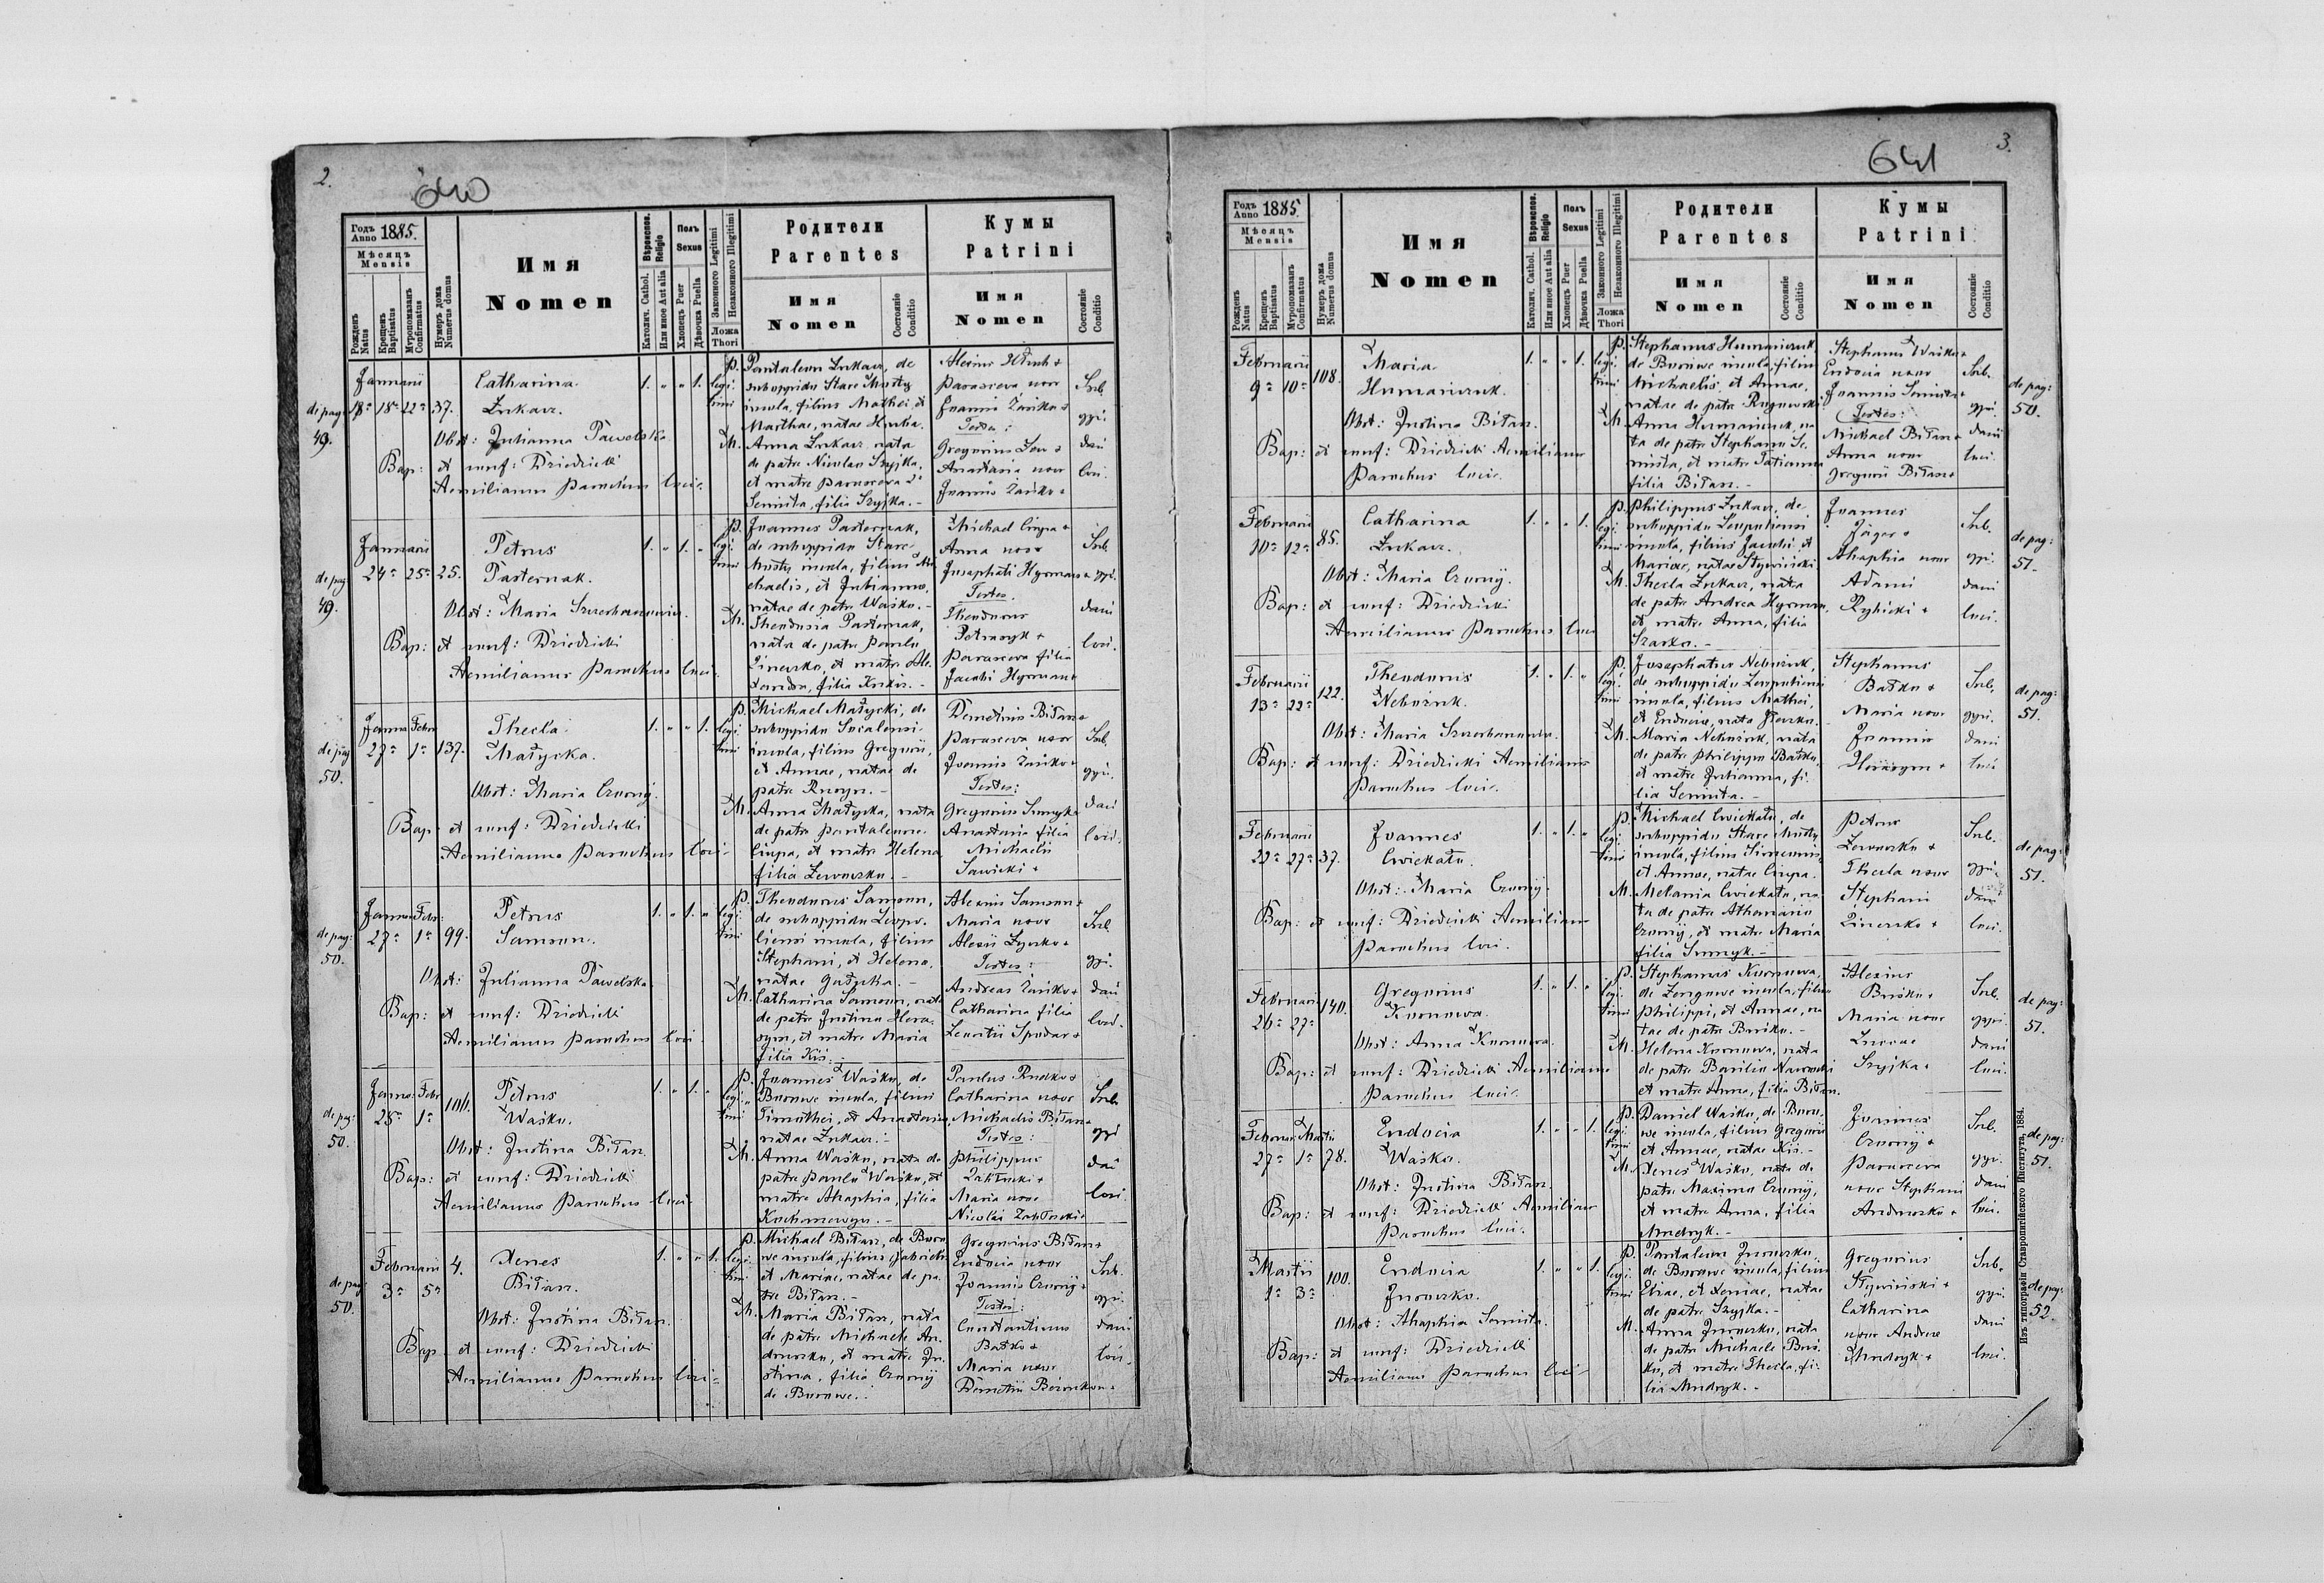 2.
640
Годъ Anno 1885.
Мѣсяцъ Mensis
Рожденъ Natus
Крещенъ Baptisatus
Мѵропомазанъ Confirmatus
Нумеръ дома Numerus domus
Имя Nomen
Вѣроиспов. Religio
Католич. Cathol.
Или иное Aut alia
Полъ Sexus
Хлопецъ Puer
Дѣвочка Puella
Законного Legitimi
Незаконного Illegitimi
Ложа Thori
Родители Parentes
Имя Nomen
Состояніе Conditio
Кумы Patrini
Имя Nomen
Состояніе Conditio
de pag: 49.
Januarii
18a 18a 22a 37.
Catharina
Łukacz.
Obst: Julianna Pawelska
Bap: et conf: Dziedzicki
Aemilianus Parochus loci.
1. „ „ 1. legi timi
P. Pantaleon Łukacz, de
suboppido Stare Miasty
incola, filius Mathei, et
Marthae, natae
M. Anna Łukacz nata
de patre Nicolao Szyjka,
et matre Parasceva
Semita, filia Szyjka.
Parasceva uxor
Joannis Zaśko +
Testes:
Gregorius
Anastasia uxor
Joannis Zaśko +
Sub.
opi.
dani
loci.
de pag 49.
Januarii
24a 25a 25.
Petrus
Pasternak.
Obst: Maria Szczerbanowicz.
Bap: et conf: Dziedzicki
Aemilianus Parochus loci.
1. „ 1. „ legi timi
P. Joannes Pasternak,
de suboppido Stare
Miasty incola, filius Mi-
chaelis, et Julianna,
natae de patre Waśko.
M. Theodosia Pasternak,
nata de patre Paulo
et matre Ale-
xandra, filia
Michael Ciupa +
Anna uxor
Josaphati Hyrman +
Testes.
Theodorus
Petraszyk +
Parasceva filia
Jacobi Hyrman +
Sub
opi.
dani
loci.
de pag 50.
Janua Febru
27a 1a 137.
Thecla
Małycka.
Obst: Maria Czorny.
Bap: et conf: Dziedzicki
Aemilianus Parochus loci
1. „ „ 1. legi timi
P. Michael Małycki, de
suboppido Socalensi
incola, filius Gregorii,
et Annae, natae de
patre
M. Anna Małycka, nata
de patre Pantaleone
Ciupa, et matre Helena
filia
Demetrius Biłan +
Parasceva uxor
Joannis Zaśko +
Testes:
Gregorius Smyk +
Anastasia filia
Michaelis
Sawicki +
Sub.
opi.
dani
loci.
de pag: 50.
Janua Febr:
27a 1a 99.
Petrus
Samson.
Obst: Julianna Pawelska
Bap: et conf: Dziedzicki
Aemilianus Parochus loci.
1. „ 1. „ legi timi
P. Theodorus Samson,
de suboppido Leopo-
liensi incola, filius
Stephani, et Helena,
natae
M. Catharina Samson, nata
de patre Justino Hera-
sym, et matre Maria
filia Kiś.
Alexius Samson +
Maria uxor
Alexii
Testes:
Andreas Zaśko +
Catharina filia
Leontii Spodar +
Sub
opi.
dani
loci.
de pag: 50.
Janua: Febr
28a 1a 106.
Petrus
Waśko.
Obst: Justina Biłan
Bap: et conf: Dziedzicki
Aemilianus Parochus loci
1. „ 1. „ legi timi
P. Joannes Waśko, de
Borowe incola, filius
Timothei, et Anastasiae,
natae Łukacz.
M. Anna Waśko, nata de
patre Paulo Waśko, et
matre Ahaphia, filia
Paulus Rudko +
Catharina uxor
Michaelis Biłan +
Testes:
Philippus
Maria uxor
Nicolai
Sub.
opi
dani
loci.
de pag 50.
Februarii
3a 5a 4.
Xenes
Biłan.
Obst: Justina Biłan.
Bap: et conf: Dziedzicki
Aemilianus Parochus loci
1. „ „ 1. legi timi
P. Michael Biłan, de Boro
we incola, filius Gabrielis
et Mariae, natae de pa-
tre Biłan.
M. Maria Biłan, nata
de patre Michaele An-
drusko, et matre Ju-
stina, filia Czorny
de Borowe.
Gregorius Biłan +
Eudocia uxor
Joannis Czorny +
Testes:
Constantinus
Batko +
Maria uxor
Demetrii
Sub.
opi.
dani
loci.
3.
641
Годъ Anno 1885.
Мѣсяцъ Mensis
Рожденъ Natus
Крещенъ Baptisatus
Мѵропомазанъ Confirmatus
Нумеръ дома Numerus domus
Имя Nomen
Вѣроиспов. Religio
Католич. Cathol.
Или иное Aut alia
Полъ Sexus
Хлопецъ Puer
Дѣвочка Puella
Законного Legitimi
Незаконного Illegitimi
Ложа Thori
Родители Parentes
Имя Nomen
Состояніе Conditio
Кумы Patrini
Имя Nomen
Состояніе Conditio
Februarii
9a 10a 108.
Maria
Humaniczuk.
Obst: Justina Biłan.
Bap: et conf: Dziedzicki Aemilianus
Parochus loci.
1. „ „ 1. legi timi
P. Stephanus Humaniczuk,
de Borowe incola, filius
Michaelis, et Annae,
natae de patre
M. Anna Humaniczuk, na-
ta de patre Stephano Se-
mita, et matre Tatianna
filia Biłan.
Stephanus Waśko +
Eudocia uxor
Joannis Semita +
Testes:
Michael Biłan +
Anna uxor
Gregorii Biłan +
Sub.
opi.
dani
loci.
de pag: 50.
Februarii
10a 12a 85.
Catharina
Łukacz.
Obst: Maria Czorny.
Bap: et conf: Dziedzicki
Aemilianus Parochus loci
1. „ „ 1. legi timi
P. Philippus Łukacz, de
suboppido Leopoliensi
incola, filius Jacobi, et
Mariae, natae
M. Thecla Łukacz, nata
de patre Andrea Hyrman,
et matre Anna, filia
Joannes
Jäger +
Ahaphia uxor
Adami
Rybicki +
Sub.
opi.
dani
loci.
de pag: 51.
Februarii
13a 22a 122.
Theodorus
Nebożuk.
Obst: Maria Szczerbanowicz.
Bap: et conf: Dziedzicki Aemilianus
Parochus loci.
1. „ 1. „ legi timi
P. Josaphatus Nebożuk,
de suboppido Leopoliensi
incola, filius Mathei,
et Eudocia, nata
M. Maria Nebożuk, nata
de patre Philippo Batko,
et matre Julianna, fi-
lia Semita.
Stephanus
Batko +
Maria uxor
Joannis
Herasym +
Sub.
opi.
dani
loci
de pag: 51.
Februarii
22a 27a 37.
Joannes
Cwiekało.
Obst: Maria Czorny.
Bap: et conf: Dziedzicki Aemilianus
Parochus loci.
1. „ 1. „ legi timi
P. Michael Cwiekało, de
suboppido Stare Miasty
incola, filius Simeonis,
et Annae, natae Ciupa.
M. Melania Cwiekało, na-
ta de patre Athanasio
Czorny, et matre Maria
filia Smyk.
Petrus
Thecla uxor
Stephani
Sub.
opi.
dani
loci.
de pag: 51.
Februarii
26a 27a 140.
Gregorius
Kuonowa.
Obst: Anna Kuonowa.
Bap: et conf: Dziedzicki Aemilianus
Parochus loci.
1. „ 1. „ legi timi
P. Stephanus Kuonowa,
incola, filius
Philippi, et Annae, na
tae de patre Buśko.
M. Helena Kuonowa, nata
de patre Basilio
et matre Anna, filia Biłan.
Alexius
Buśko +
Maria uxor
Lucae
Szyjka +
Sub.
opi.
dani
loci.
de pag: 51.
Februar Martii
27a 1a 78.
Eudocia
Waśko.
Obst: Justina Biłan.
Bap: et conf: Dziedzicki Aemilianus
Parochus loci.
1. „ „ 1. legi timi
P. Daniel Waśko, de Boro-
we incola, filius Gregorii
et Annae, natae Kiś.
M. Xenes Waśko, nata de
patre Maximo Czorny,
et matre Anna, filia
Mudryk.
Joannes
Czorny +
Parasceva
uxor Stephani
Andrusko +
Sub.
opi.
dani
loci.
de pag: 51.
Martii
1a 3a 100.
Eudocia
Obst: Ahaphia Semita.
Bap: et conf: Dziedzicki
Aemilianus Parochus loci
1. „ „ 1. legi timi
P. Pantaleon
de Borowe incola, filius
Eliae, et Xeniae, natae
de patre Szyjka.
M. Anna nata
de patre Michaele Buś-
ko, et matre Thecla, fi-
lia Mudryk.
Gregorius
Catharina
uxor Andreae
Mudryk +
Sub.
opi.
dani
loci.
de pag: 52.
Изъ типографіи Ставропигійского Института, 1884.